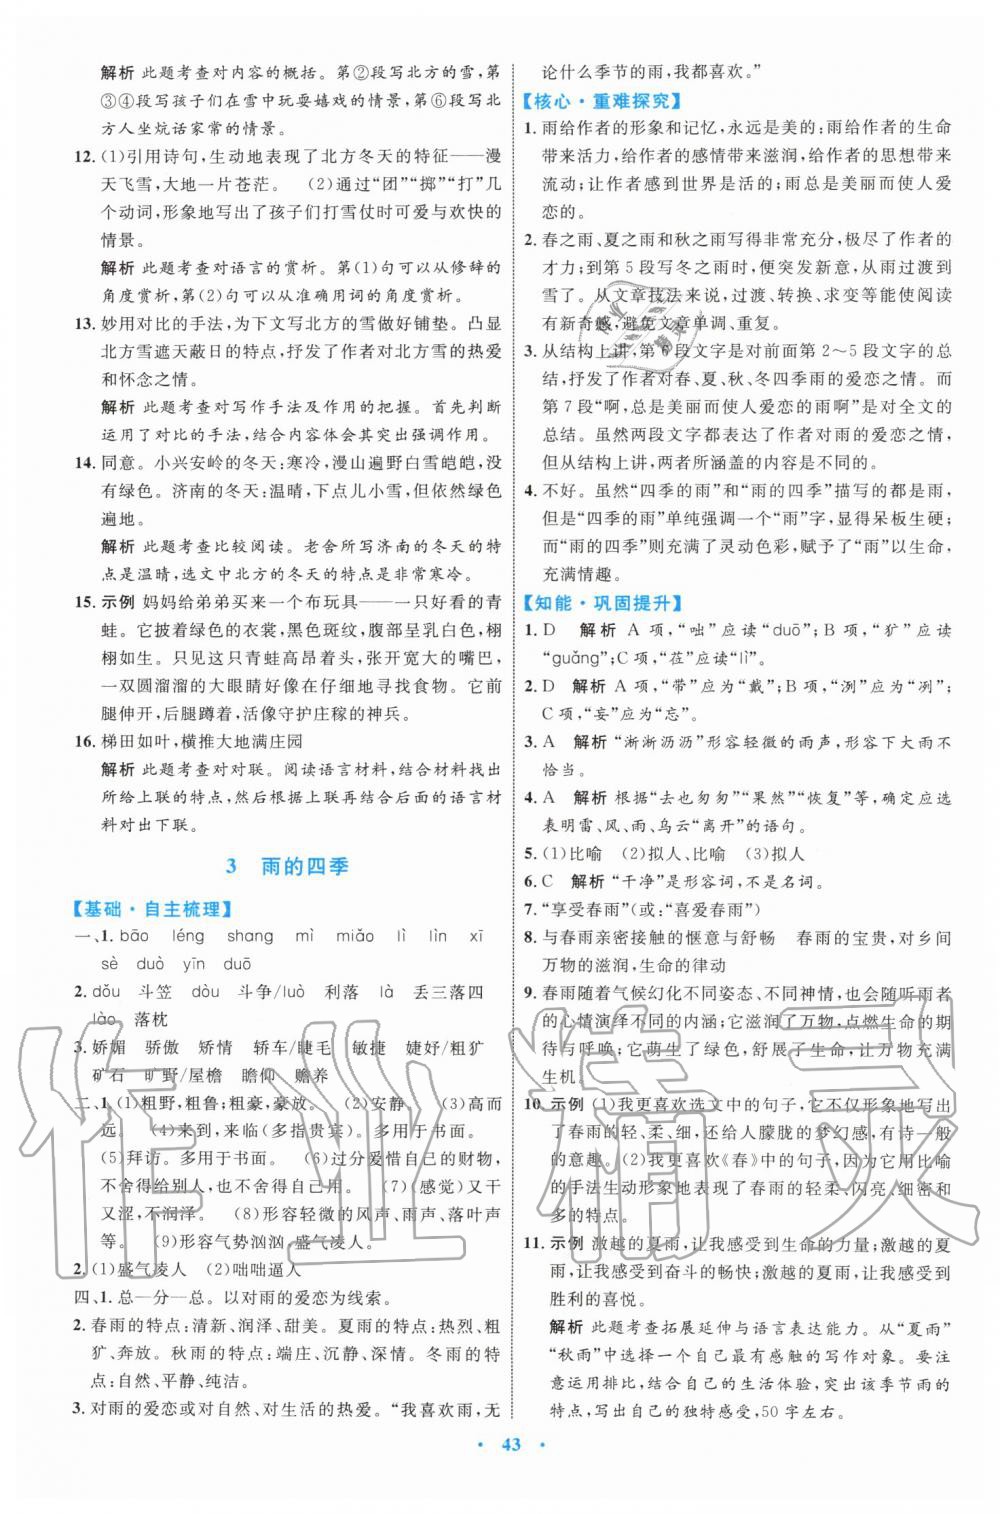 解析 此题考查对内容的概括。第②段写北方的雪,第
③④段写孩子们在雪中玩耍嬉戏的情景,第⑥段写北
方人坐炕话家常的情景。
12. (1)引用诗句,生动地表现了北方冬天的特征——漫
天飞雪,大地一片苍茫。 (2)通过“团”“掷”“打”几
个动词,形象地写出了孩子们打雪仗时可爱与欢快的
情景。
解析 此题考查对语言的赏析。第(1)句可以从修辞的
角度赏析,第(2)句可以从准确用词的角度赏析。
13. 妙用对比的手法,为下文写北方的雪做好铺垫。凸显
北方雪遮天蔽日的特点,抒发了作者对北方雪的热爱
和怀念之情。
解析 此题考查对写作手法及作用的把握。首先判断
运用了对比的手法,结合内容体会其突出强调作用。
14. 同意。小兴安岭的冬天:寒冷,漫山遍野白雪皑皑,没
有绿色。济南的冬天:温晴,下点儿小雪,但依然绿色
遍地。
解析 此题考查比较阅读。老舍所写济南的冬天的特
点是温晴,选文中北方的冬天的特点是非常寒冷。
15. 示例 妈妈给弟弟买来一个布玩具——一只好看的青
蛙。它披着绿色的衣裳,黑色斑纹,腹部呈乳白色,栩
栩如生。只见这只青蛙高昂着头,张开宽大的嘴巴,
一双圆溜溜的大眼睛好像在仔细地寻找食物。它前
腿伸开,后腿蹲着,活像守护庄稼的神兵。
16. 梯田如叶,横推大地满庄园
解析 此题考查对对联。阅读语言材料,结合材料找出
所给上联的特点,然后根据上联再结合后面的语言材
料对出下联。
3 雨的四季
【基础·自主梳理】
一、1. bāo léng shang mì miǎo lì lìn xī
sè duò yīn duō
2. dǒu 斗笠 dòu 斗争/luò 利落 là 丢三落四
lào 落枕
3. 娇媚 骄傲 矫情 轿车/睫毛 敏捷 婕妤/粗犷
矿石 旷野/屋檐 瞻仰 赡养
二、1. (1)粗野,粗鲁;粗豪,豪放。 (2)安静。 (3)高而
远。 (4)来到,来临(多指贵宾)。多用于书面。
(5)拜访。多用于书面。 (6)过分爱惜自己的财物,
不舍得给别人,也不舍得自己用。 (7)(感觉)又干
又涩,不润泽。 (8)形容轻微的风声、雨声、落叶声
等。 (9)形容气势汹汹,盛气凌人。
2. (1)盛气凌人 (2)咄咄逼人
四、1. 总—分—总。以对雨的爱恋为线索。
2. 春雨的特点:清新、润泽、甜美。夏雨的特点:热烈、粗
犷、奔放。秋雨的特点:端庄、沉静、深情。冬雨的特
点:自然、平静、纯洁。
3. 对雨的爱恋或对自然、对生活的热爱。“我喜欢雨,无
论什么季节的雨,我都喜欢。”
【核心·重难探究】
1. 雨给作者的形象和记忆,永远是美的;雨给作者的生命
带来活力,给作者的感情带来滋润,给作者的思想带来
流动;让作者感到世界是活的;雨总是美丽而使人爱
恋的。
2. 春之雨、夏之雨和秋之雨写得非常充分,极尽了作者的
才力;到第 5 段写冬之雨时,便突发新意,从雨过渡到
雪了。从文章技法来说,过渡、转换、求变等能使阅读
有新奇感,避免文章单调、重复。
3. 从结构上讲,第 6 段文字是对前面第 2～5 段文字的总
结,抒发了作者对春、夏、秋、冬四季雨的爱恋之情。而
第 7 段“啊,总是美丽而使人爱恋的雨啊”是对全文的
总结。虽然两段文字都表达了作者对雨的爱恋之情,
但从结构上讲,两者所涵盖的内容是不同的。
4. 不好。虽然“四季的雨”和“雨的四季”描写的都是雨,
但是“四季的雨”单纯强调一个“雨”字,显得呆板生硬;
而“雨的四季”则充满了灵动色彩,赋予了“雨”以生命,
充满情趣。
【知能·巩固提升】
1. D 解析 A 项,“咄”应读“duō”;B 项,“犷”应读
“guǎng”;C 项,“莅”应读“lì”。
2. D 解析 A 项,“带”应为“戴”;B 项,“洌”应为“冽”;
C 项,“妄”应为“忘”。
3. A 解析 “淅淅沥沥”形容轻微的雨声,形容下大雨不
恰当。
4. A 解析 根据“去也匆匆”“果然”“恢复”等,确定应选
表明雷、风、雨、乌云“离开”的语句。
5. (1)比喻 (2)拟人、比喻 (3)拟人
6. C 解析 “干净”是形容词,不是名词。
7. “享受春雨”(或:“喜爱春雨”)
8. 与春雨亲密接触的惬意与舒畅 春雨的宝贵,对乡间
万物的滋润,生命的律动
9. 春雨随着气候幻化不同姿态、不同神情,也会随听雨者
的心情演绎不同的内涵;它滋润了万物,点燃生命的期
待与呼唤;它萌生了绿色,舒展了生命,让万物充满
生机。
10. 示例 (1)我更喜欢选文中的句子,它不仅形象地写出
了春雨的轻、柔、细,还给人朦胧的梦幻感,有诗一般
的意趣。(2)我更喜欢《春》中的句子,因为它用比喻
的手法生动形象地表现了春雨的轻柔、闪亮、细密和
多的特点。
11. 示例 激越的夏雨,让我感受到生命的力量;激越的夏
雨,让我感受到奋斗的畅快;激越的夏雨,让我感受到
胜利的喜悦。
解析 此题考查拓展延伸与语言表达能力。从“夏雨”
“秋雨”中选择一个自己最有感触的写作对象。要注
意运用排比,结合自己的生活体验,突出该季节雨的
特点,写出自己的独特感受,50 字左右。
· 43 ·
作业精灵